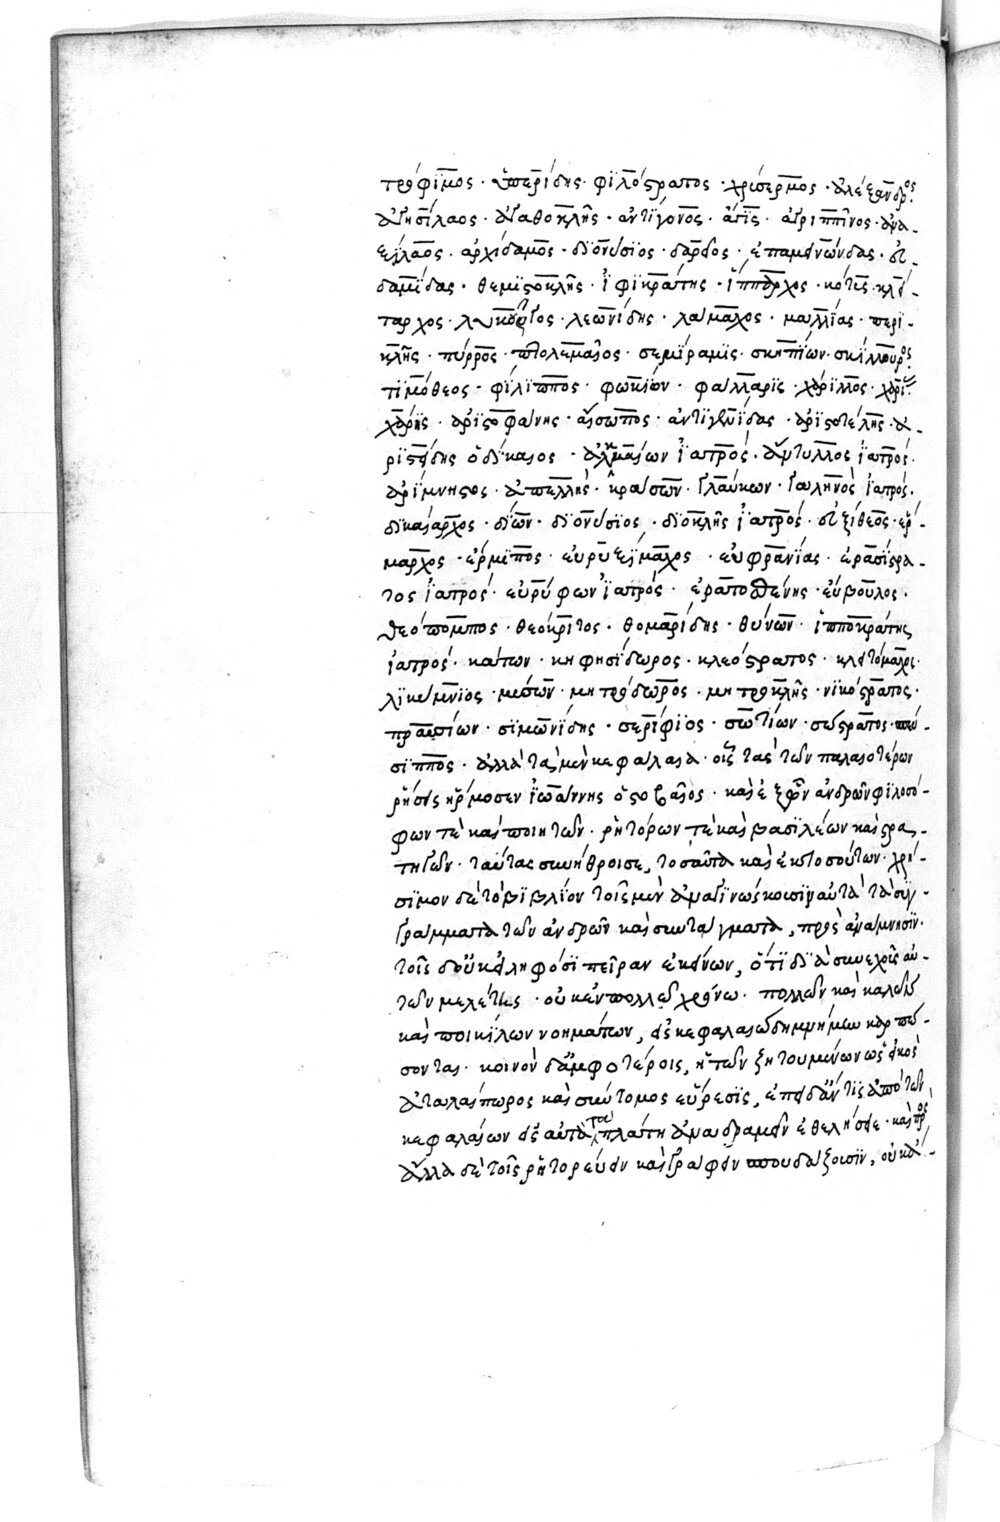 τρόφιμος · ὑπερίδης · φιλόστρατος · χρύσερμος · ἀλέξανδρος
ἀγησίλαος · ἀγαθοκλῆς · ἀντίγονος · ἆγις · ἀγριππῖνος · ἀνα-
ξίλαος · ἀρχίδαμος · διονύσιος · δαρεῖος · ἐπαμεινώνδας · εὐ-
δαμίδας · θεμιστοκλῆς · ἰφικράτης · ἵππαρχος · κότις · κλέ-
ταρχος · λυκοῦργος · λεωνίδης · λάμαχος · μαλλίας · περι-
κλῆς · πύρρος · πτολεμαῖος · σεμίραμις · σκηπίων · σκίλλουρος
τιμόθεος · φίλιππος · φωκίων · φάλλαρις · χάριλλος ·
χάρης · ἀριστοφάνης · αἴσωπος · ἀντιγενίδας · ἀριστοτέλης · ἀ-
ριστείδης ὁ δίκαιος · ἀλκμαίων ἰατρός · ἄντυλλος ἰατρός ·
ἀρίμνηστος · ἀπελλῆς · κραίσων · γλαύκων · γαληνὸς ἰατρός ·
δικαίαρχος · δίων · διονύσιος · διοκλῆς ἰατρός · εὐξίθεος · ἕρ-
μαρχος · ἕρμιππος · εὐρυσίμαχος · εὐφρανίας · ἐρασίστρα-
τος ἰατρός · εὐρύφων ἰατρός · ἐρατοσθένης · εὔβουλος ·
θεόπομπος · θεόκριτος · θομαρίδης · θύνων · ἱπποκράτης
ἰατρός · κάτων · κηφησίδωρος · κλεόστρατος · κλειτόμαχος ·
λικύμνιος · μέσων · μητρόδωρος · μητροκλῆς · νικόστρατος ·
πραξίων · σιμωνίδης · σερίφιος · σωτίων · σώστρατος ·
σιππος · ἀλλὰ τὰ μὲν κεφάλαια · οἷς τὰς τῶν παλαιοτέρων
ῥήσεις ἥρμοσεν ἰωάννης ὁ στοβαῖος · καὶ ἐξ ὧν ἀνδρῶν φιλοσό-
φων τὲ καὶ ποιητῶν · ῥητόρων τὲ καὶ βασιλέων καὶ στρα-
τηγῶν · ταύτας συνήθροισε, τοσαῦτα καὶ ἐκ τοσούτων · χρή-
σιμον δὲ τὸ βιβλίον τοῖς μὲν ἀναγινώσκουσιν αὐτὰ τὰ συγ-
γράμματα τῶν ἀνδρῶν καὶ συντάγματα, πρὸς ἀνάμνησιν ·
τοῖς δ' οὐκ εἰληφόσι πεῖραν ἐκείνων, ὅτι διὰ συνεχοῦς αὐ-
τῶν μελέτης · οὐκ ἐν πολλῷ χρόνῳ · πολλῶν καὶ καλῶν
καὶ ποικίλων νοημάτων, εἰ κεφαλαιώδη μνήμην καρπώ-
σονται · κοινὸν δ' ἀμφοτέροις, ἡ τῶν ζητουμένων ὡς εἰκὸς
ἀταλαίπωρος καὶ σύντομος εὕρεσις, ἐπειδάν τις ἀπὸ τῶν
κεφαλαίων εἰς αὐτὰ τὰ πλάτη ἀναδραμεῖν ἐθελήσειε · καὶ πρὸς
ἄλλα δὲ τοῖς ῥητορεύειν καὶ γράφειν σπουδάζουσιν, οὐκ ἀ-